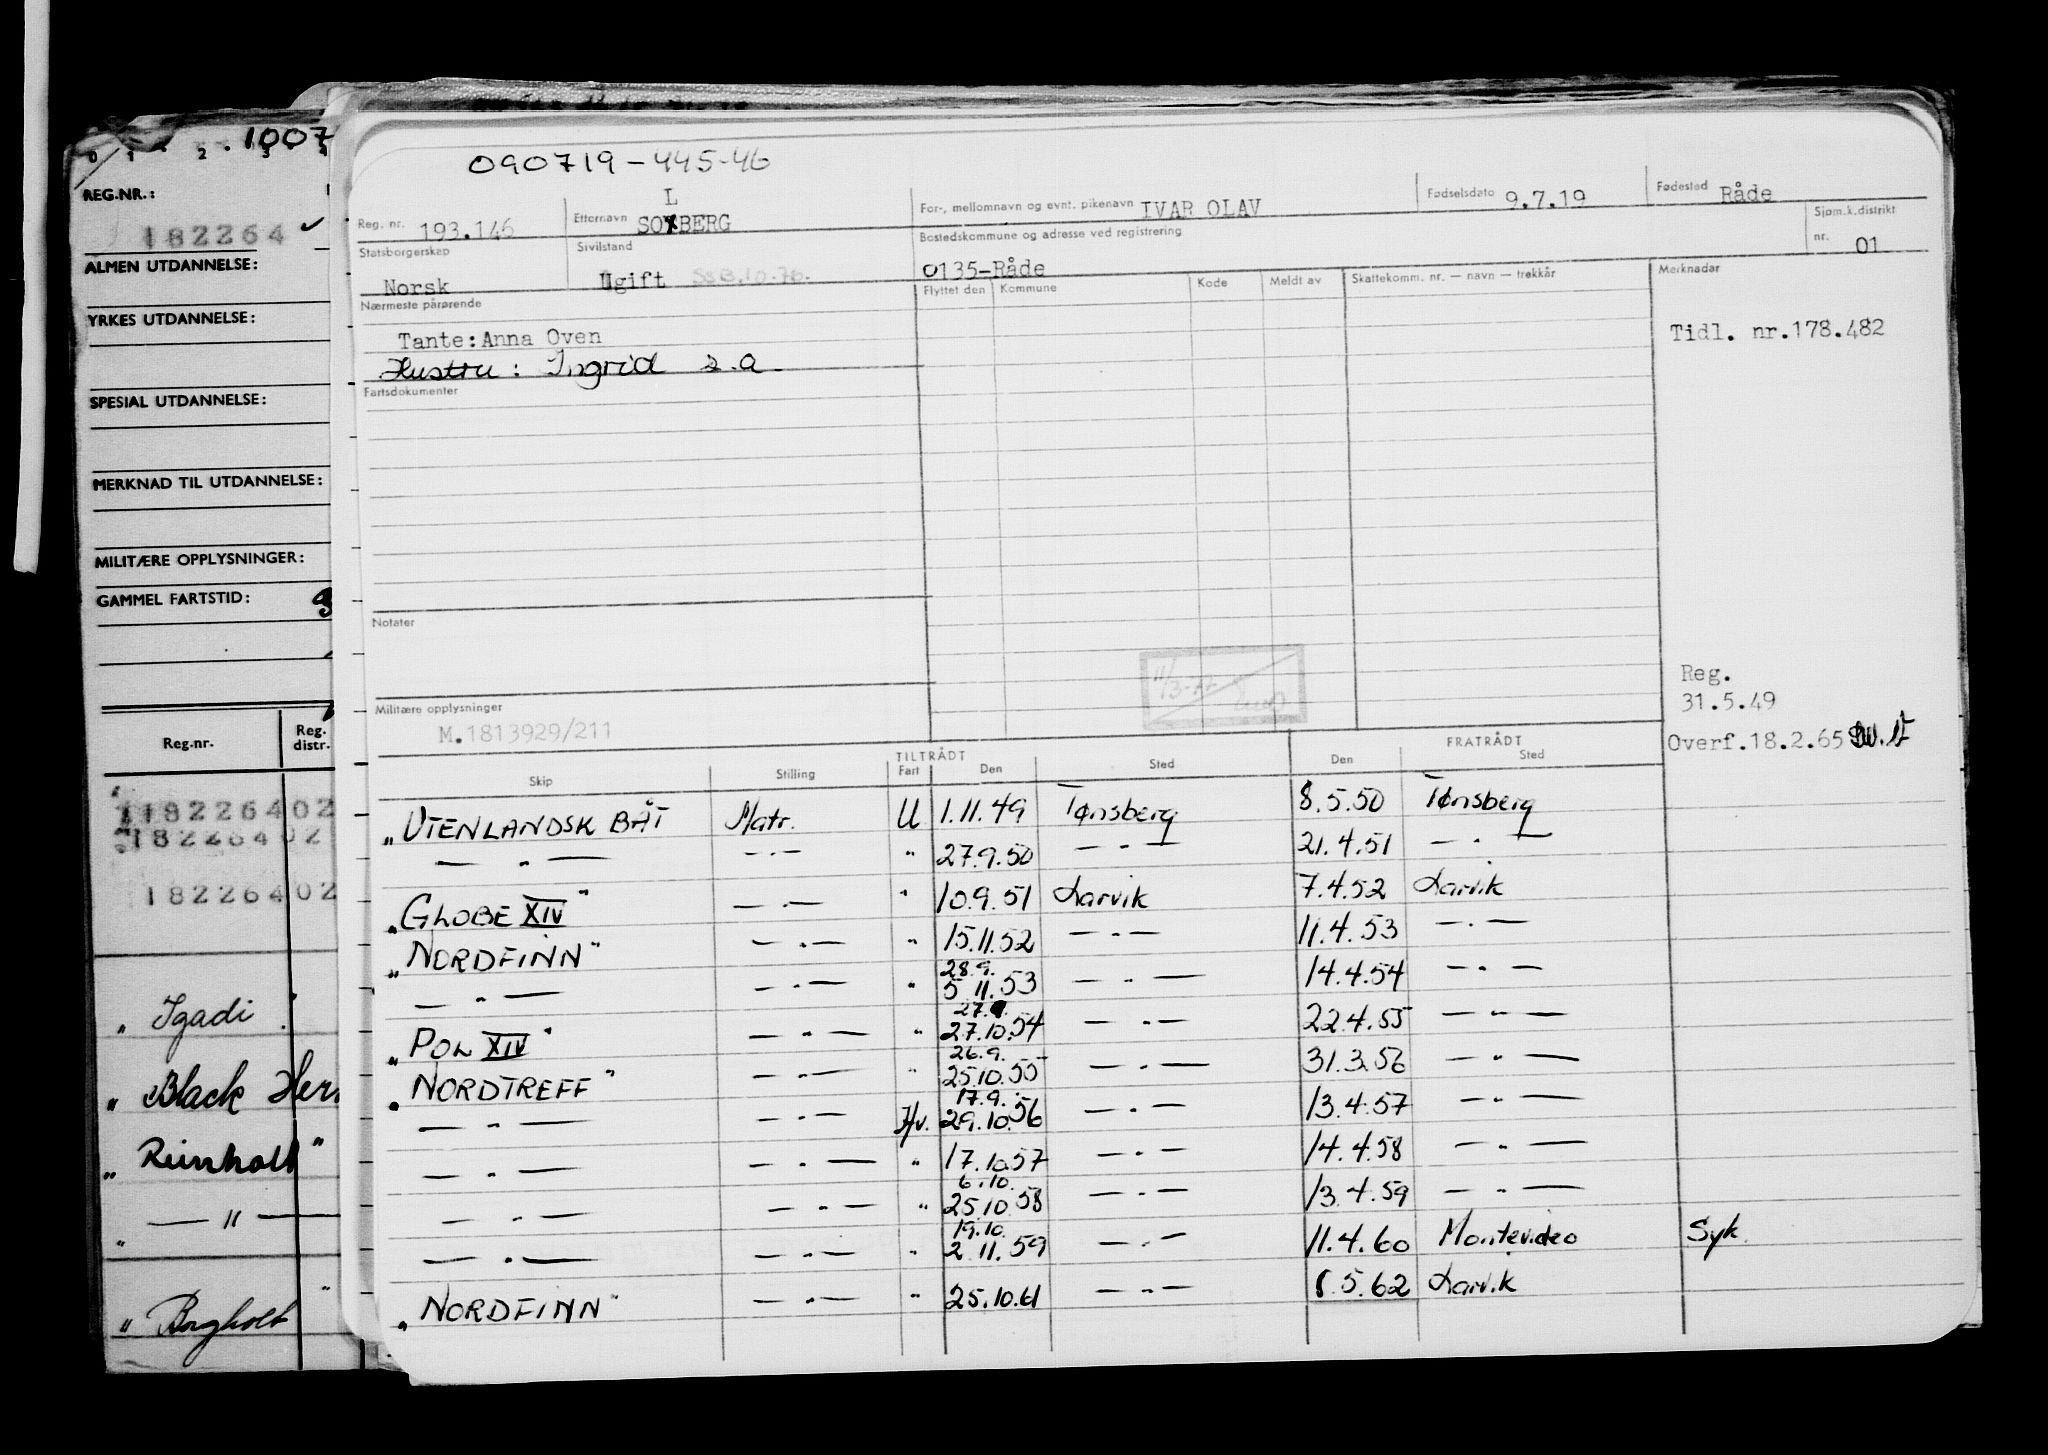 .1007
0 1 2 3 4
REG.NR.:
182264 ✓
ALMEN UTDANNELSE:
YRKES UTDANNELSE:
SPESIAL UTDANNELSE:
MERKNAD TIL UTDANNELSE:
MILITÆRE OPPLYSNINGER:
GAMMEL FARTSTID:
Reg.nr. Reg. distr.
18226402
18226402
18226402
„ Igadi "
„ Black
„ Reinholt "
„ — " —
„ Borgholt "
090719-445-46
Reg. nr. 193.146
Etternavn SOLBERG
For-, mellomnavn og evnt. pikenavn IVAR OLAV
Fødselsdato 9.7.19
Fødested Råde
Statsborgerskap Norsk
Sivilstand Ugift SSB.10.76.
Bostedskommune og adresse ved registrering 0135-Råde
Sjøm.k.distrikt nr. 01
Nærmeste pårørende
Tante: Anna Oven
Hustru: Ingrid s.a
Flyttet den Kommune Kode Meldt av Skattekomm. nr. — navn — trekkår Merknader
Tidl. nr.178.482
Fartsdokumenter
Notater
11/3-77
Militære opplysninger
M.1813929/211
Reg.
31.5.49
Overf.18.2.65
TILTRÅDT FRATRÅDT
Skip Stilling Fart Den Sted Den Sted
„UTENLANDSK BÅT Matr. U 1.11.49 Tønsberg 8.5.50 Tønsberg
— " — — " — " 27.9.50 — " — 21.4.51 — " —
„GLOBE XIV" — " — " 10.9.51 Larvik 7.4.52 Larvik
„NORDFINN" — " — " 15.11.52 — " — 11.4.53 — " —
28.9.
— " — — " — " 5.11.53 — " — 14.4.54 — " —
27.9.
„POL XIV" — " — " 27.10.54 — " — 22.4.55 — " —
26.9.
„NORDTREFF" — " — " 25.10.55 — " — 31.3.56 — " —
17.9.
— " — — " — Hv. 29.10.56 — " — 13.4.57 — " —
— " — — " — " 17.10.57 — " — 14.4.58 — " —
6.10.
— " — — " — " 25.10.58 — " — 13.4.59 — " —
19.10.
— " — — " — " 2.11.59 — " — 11.4.60 Montevideo Syk.
„NORDFINN" — " — " 25.10.61 — " — 8.5.62 Larvik